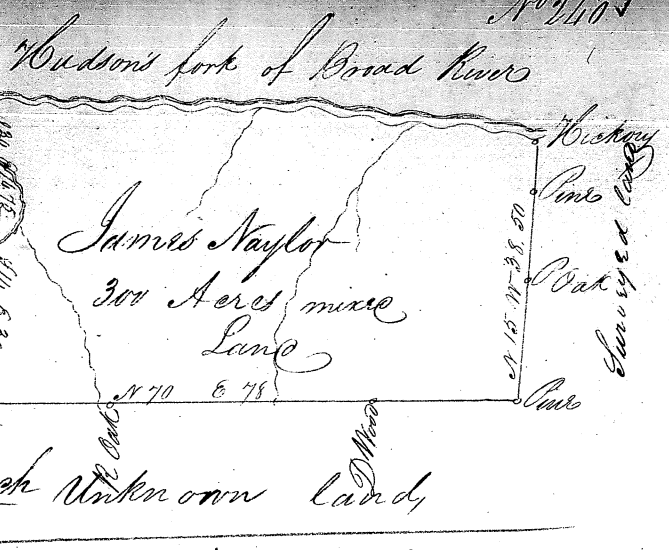 No 240
Hudson's fork of Broad River
Hickory
Pine
Surveyed land
N 15 W 38.50
Oak
James Naylor
300 Acres mixed
Land
N 70 E 78
Pine
R Oak
D Wood
Unknown land,